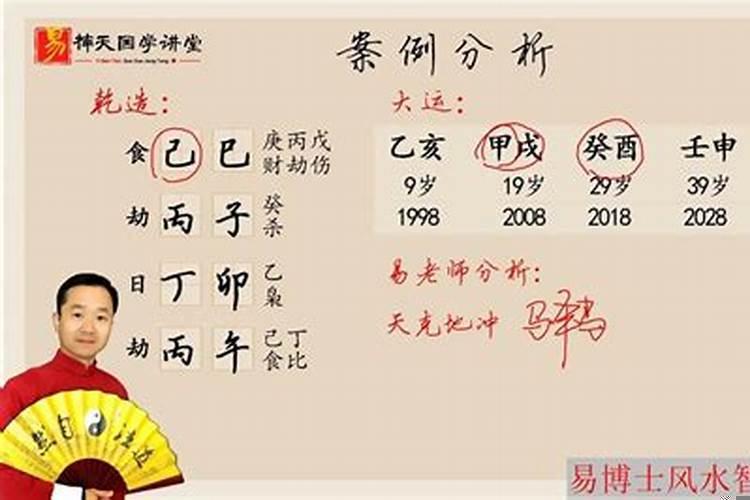 易 神天国学讲堂
案例分析
乾造：
食 己 巳 庚 丙 戊
财 劫 伤
劫 丙 子 癸
杀
日 丁 卯 乙
枭
劫 丙 午 己 丁
食 比
大运：
乙亥 甲戌 癸酉 壬申
9岁 19岁 29岁 39岁
1998 2008 2018 2028
易老师分析：
天克地冲
自 法
易博士风水智